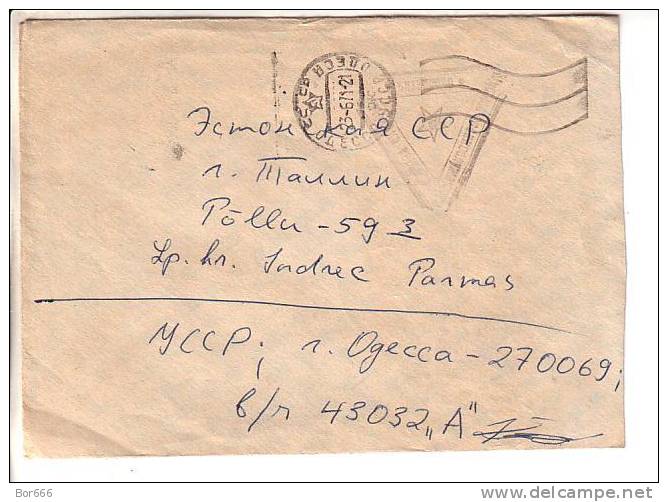 ОДЕССА
23-6.71-21
Эстонская ССР
г. Таллин
Põllu-59 3
Lp. hr. Indrec Parmas
УССР; г. Одесса-270069;
в/ч 43032 „А"
Bor666
www.delcampe.net